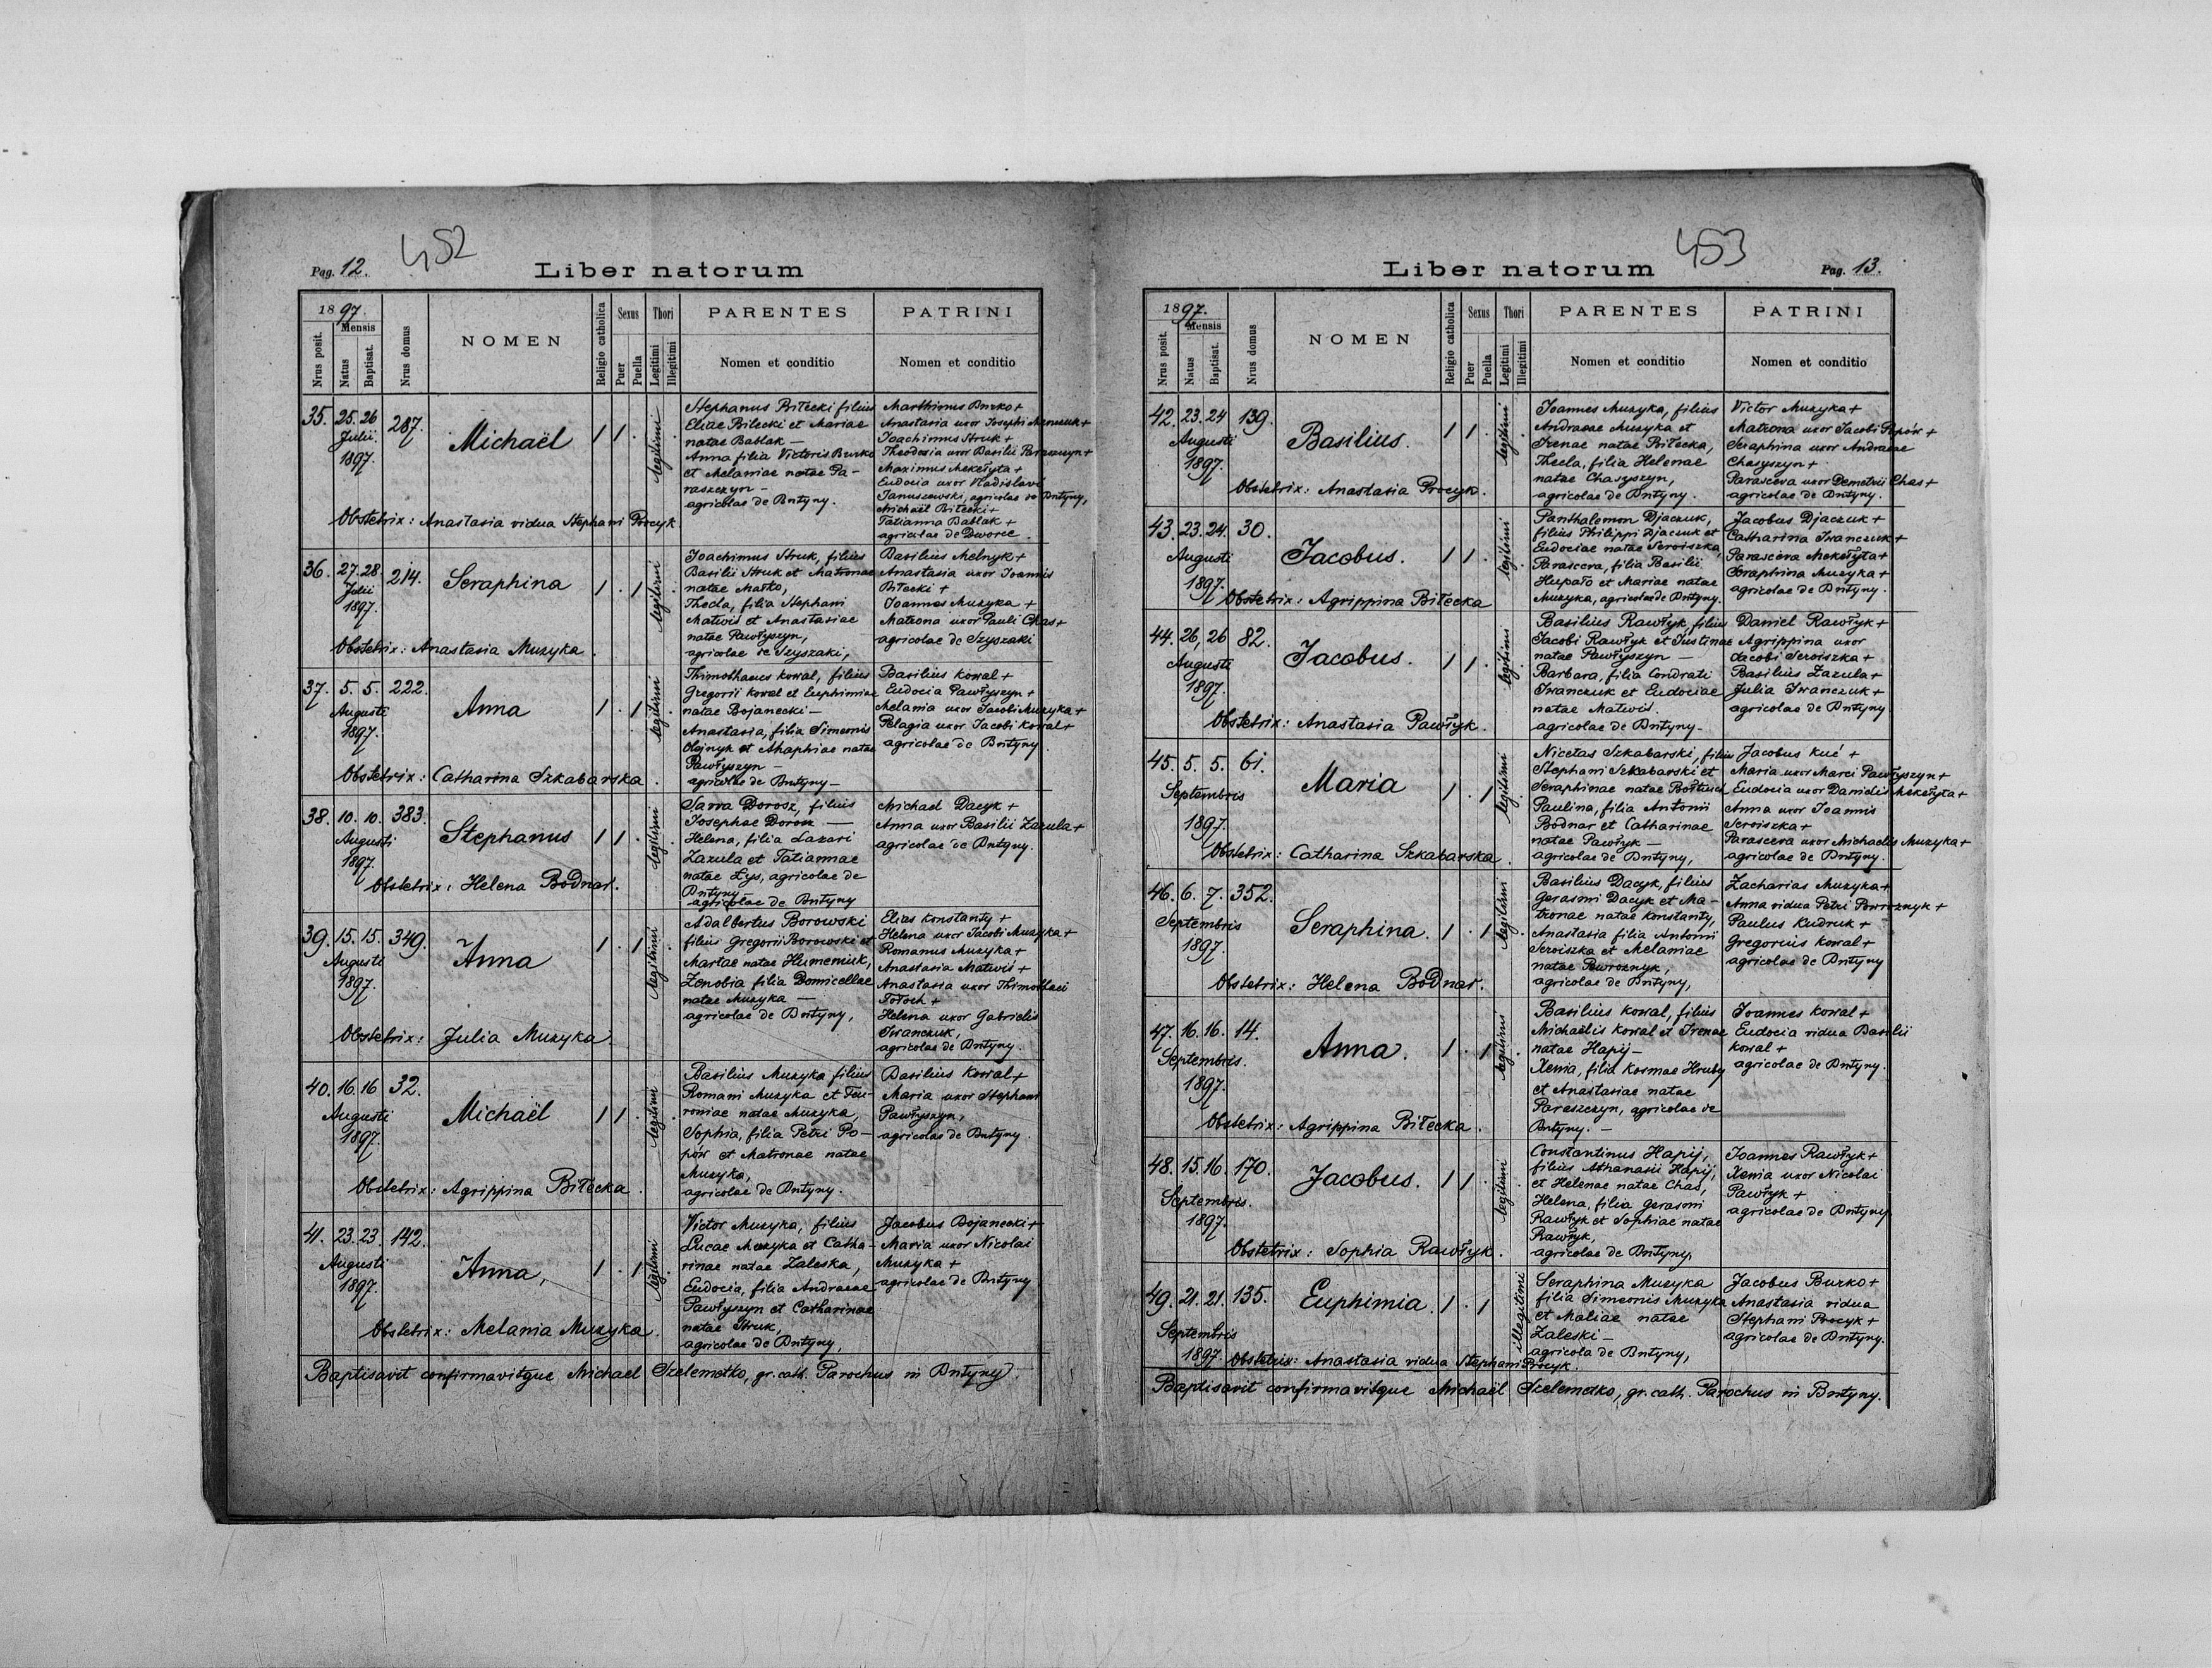 Pag. 12.
452
Liber natorum
1897.
Nrus posit.
Mensis
Natus
Baptisat.
Nrus domus
NOMEN
Religio catholica
Sexus
Puer
Puella
Thori
Legitimi
Illegitimi
PARENTES
Nomen et conditio
PATRINI
Nomen et conditio
35. 25. 26 287. Michaël 1 1 . legitimi .
Julii
1897.
Stephanus Biłecki filius
Eliae Bilecki et Mariae
natae Bablak —
Anna filia Victoris Burko
et Melaniae natae Pa-
raszczyn —
agricolae de Bntyny.
Marthinus Burko +
Anastasia uxor Josephi
Joachimus Struk +
Theodosia uxor Basilii Paraszczyn +
Maximus Mekełyta +
Eudocia uxor Vladislavi
Januszewski, agricolae de Bntyny,
Michaël Biłecki +
Tatianna Bablak +
agricolae de Dworce.
Obstetrix: Anastasia vidua Stephani Procyk
36. 27. 28 214. Seraphina 1 . 1 legitimi .
Julii
1897.
Joachimus Struk, filius
Basilii Struk et Matronae
natae Matko,
Thecla, filia Stephani
Matwis et Anastasiae
natae Pawłyszyn,
agricolae de Szyszaki,
Basilius Melnyk +
Anastasia uxor Joannis
Biłecki +
Joannes Muzyka +
Matrona uxor Pauli Chas +
agricolae de Szyszaki
Obstetrix: Anastasia Muzyka.
37. 5. 5. 222. Anna 1 . 1 legitimi .
Augusti
1897.
Thimothaeus Kowal, filius
Gregorii Kowal et Euphimiae
natae Bojanecki —
Anastasia, filia Simeonis
Olejnyk et Ahaphiae natae
Pawłyszyn —
agricolae de Bntyny —
Basilius Kowal +
Eudocia Pawłyszyn +
Melania uxor Jacobi Muzyka +
Pelagia uxor Jacobi Kowal +
agricolae de Bntyny.
Obstetrix: Catharina Szkabarska.
38. 10. 10. 383. Stephanus 1 1 . legitimi
Augusti
1897.
Sawa Dorosz, filius
Josephae Dorosz —
Helena, filia Lazari
Zazula et Tatiannae
natae Lys, agricolae de
Bntyny
agricolae de Bntyny
Michael Dacyk +
Anna uxor Basilii Zazula +
agricolae de Bntyny.
Obstetrix: Helena Bodnar.
39. 15. 15. 349. Anna 1 . 1 legitimi .
Augusti
1897.
Adalbertus Borowski
filius Gregorii Borowski et
Martae natae Humeniuk,
Zenobia filia Domicellae
natae Muzyka —
agricolae de Bntyny,
Elias Konstanty +
Helena uxor Jacobi Muzyka +
Romanus Muzyka +
Anastasia Matwiś +
Anastasia uxor Thimothaei
Tołoch +
Helena uxor Gabrielis
Iwanczuk,
agricolae de Bntyny.
Obstetrix: Julia Muzyka
40. 16. 16 32. Michaël 1 1 . legitimi .
Augusti
1897.
Basilius Muzyka filius
Romani Muzyka et Feu-
roniae natae Muzyka,
Sophia, filia Petri Po-
pów et Matronae natae
Muzyka,
agricolae de Bntyny.
Basilius Kowal +
Maria uxor Stephani
Pawłyszyn,
agricolae de Bntyny.
Obstetrix: Agrippina Biłecka.
41. 23. 23. 142. Anna, 1 . 1 legitimi .
Augusti
1897.
Victor Muzyka, filius
Lucae Muzyka et Catha-
rinae natae Zaleska,
Eudocia, filia Andraeae
Pawłyszyn et Catharinae
natae Struk,
agricolae de Bntyny,
Jacobus Bojanecki +
Maria uxor Nicolai
Muzyka +
agricolae de Bntyny
Obstetrix: Melania Muzyka.
Baptisavit confirmavitque Michael Szelemetko, gr. cath. Parochus in Bntyny.
453
Liber natorum
Pag. 13.
1897.
Nrus posit.
Mensis
Natus
Baptisat.
Nrus domus
NOMEN
Religio catholica
Sexus
Puer
Puella
Thori
Legitimi
Illegitimi
PARENTES
Nomen et conditio
PATRINI
Nomen et conditio
42. 23. 24 139. Basilius. 1 1 . legitimi .
Augusti
1897.
Joannes Muzyka, filius
Andraeae Muzyka et
Irenae natae Biłecka,
Thecla, filia Helenae
natae Chasyszyn,
agricolae de Bntyny.
Victor Muzyka +
Matrona uxor Jacobi Popów +
Seraphina uxor Andraeae
Chasyszyn +
Parasceva uxor Demetrii Chas +
agricolae de Bntyny.
Obstetrix: Anastasia Procyk.
43. 23. 24. 30. Jacobus. 1 1 . legitimi .
Augusti
1897.
Panthalemon Djaczuk,
filius Philippi Djaczuk et
Eudociae natae Seroiszka,
Parasceva, filia Basilii
Hupało et Mariae natae
Muzyka, agricolae de Bntyny.
Jacobus Djaczuk +
Catharina Iwanczuk +
Parasceva Mekełyta +
Seraphina Muzyka +
agricolae de Bntyny.
Obstetrix: Agrippina Biłecka
44. 26, 26 82. Jacobus. 1 1 . legitimi .
Augusti
1897.
Basilius Rawłyk filius
Jacobi Rawłyk et Justinae
natae Pawłyszyn —
Barbara, filia Condrati
Iwanczuk et Eudociae
natae Matwis.
agricolae de Bntyny.
Daniel Rawłyk +
Agrippina uxor
Jacobi Seroiszka +
Basilius Zazula +
Julia Iwanczuk +
agricolae de Bntyny.
Obstetrix: Anastasia Pawłyk.
45. 5. 5. 61. Maria 1 . 1 legitimi .
Septembris
1897.
Nicetas Szkabarski, filius
Stephani Szkabarski et
Seraphinae natae
Paulina, filia Antonii
Bodnar et Catharinae
natae Pawłyk —
agricolae de Bntyny,
Jacobus Kuć +
Maria uxor Marci Pawłyszyn +
Eudocia uxor Danielis Mekełyta +
Anna uxor Joannis
Seroiszka +
Parasceva uxor Michaelis Muzyka +
agricolae de Bntyny.
Obstetrix: Catharina Szkabarska.
46. 6. 7. 352. Seraphina. 1 . 1 legitimi .
Septembris
1897.
Basilius Dacyk, filius
Gerasmi Dacyk et Ma-
tronae natae Konstanty,
Anastasia filia Antonii
Seroiszka et Melaniae
natae Powroznyk,
agricolae de Bntyny,
Zacharias Muzyka +
Anna vidua Petri Powroznyk +
Paulus Kudruk +
Gregorius Kowal +
agricolae de Bntyny
Obstetrix: Helena Bodnar.
47. 16. 16. 14. Anna. 1 . 1 legitimi .
Septembris.
1897.
Basilius Kowal, filius
Michaëlis Kowal et Irenae
natae Hapij —
Xenia, filia Kosmae Hruby
et Anastasiae natae
Paraszczyn, agricolae de
Bntyny. —
Joannes Kowal +
Eudocia vidua Basilii
Kowal +
agricolae de Bntyny.
Obstetrix: Agrippina Biłecka.
48. 15. 16. 170. Jacobus. 1 1 . legitimi .
Septembris.
1897.
Constantinus Hapij,
filius Athanasii Hapij,
et Helenae natae Chas,
Helena, filia Gerasmi
Rawłyk et Sophiae natae
Rawłyk,
agricolae de Bntyny,
Joannes Rawłyk +
Xenia uxor Nicolai
Pawłyk +
agricolae de Bntyny
Obstetrix: Sophia Rawłyk.
49. 21. 21. 135. Euphimia. 1 . 1 illegitimi
Septembris
1897.
Seraphina Muzyka
filia Simeonis Muzyka
et Maliae natae
Zaleski —
agricola de Bntyny,
Jacobus Burko +
Anastasia vidua
Stephani Procyk +
agricolae de Bntyny.
Obstetrix: Anastasia vidua Stephani Procyk.
Baptisavit confirmavitque Michaël Szelemetko, gr. cath. Parochus in Bntyny.